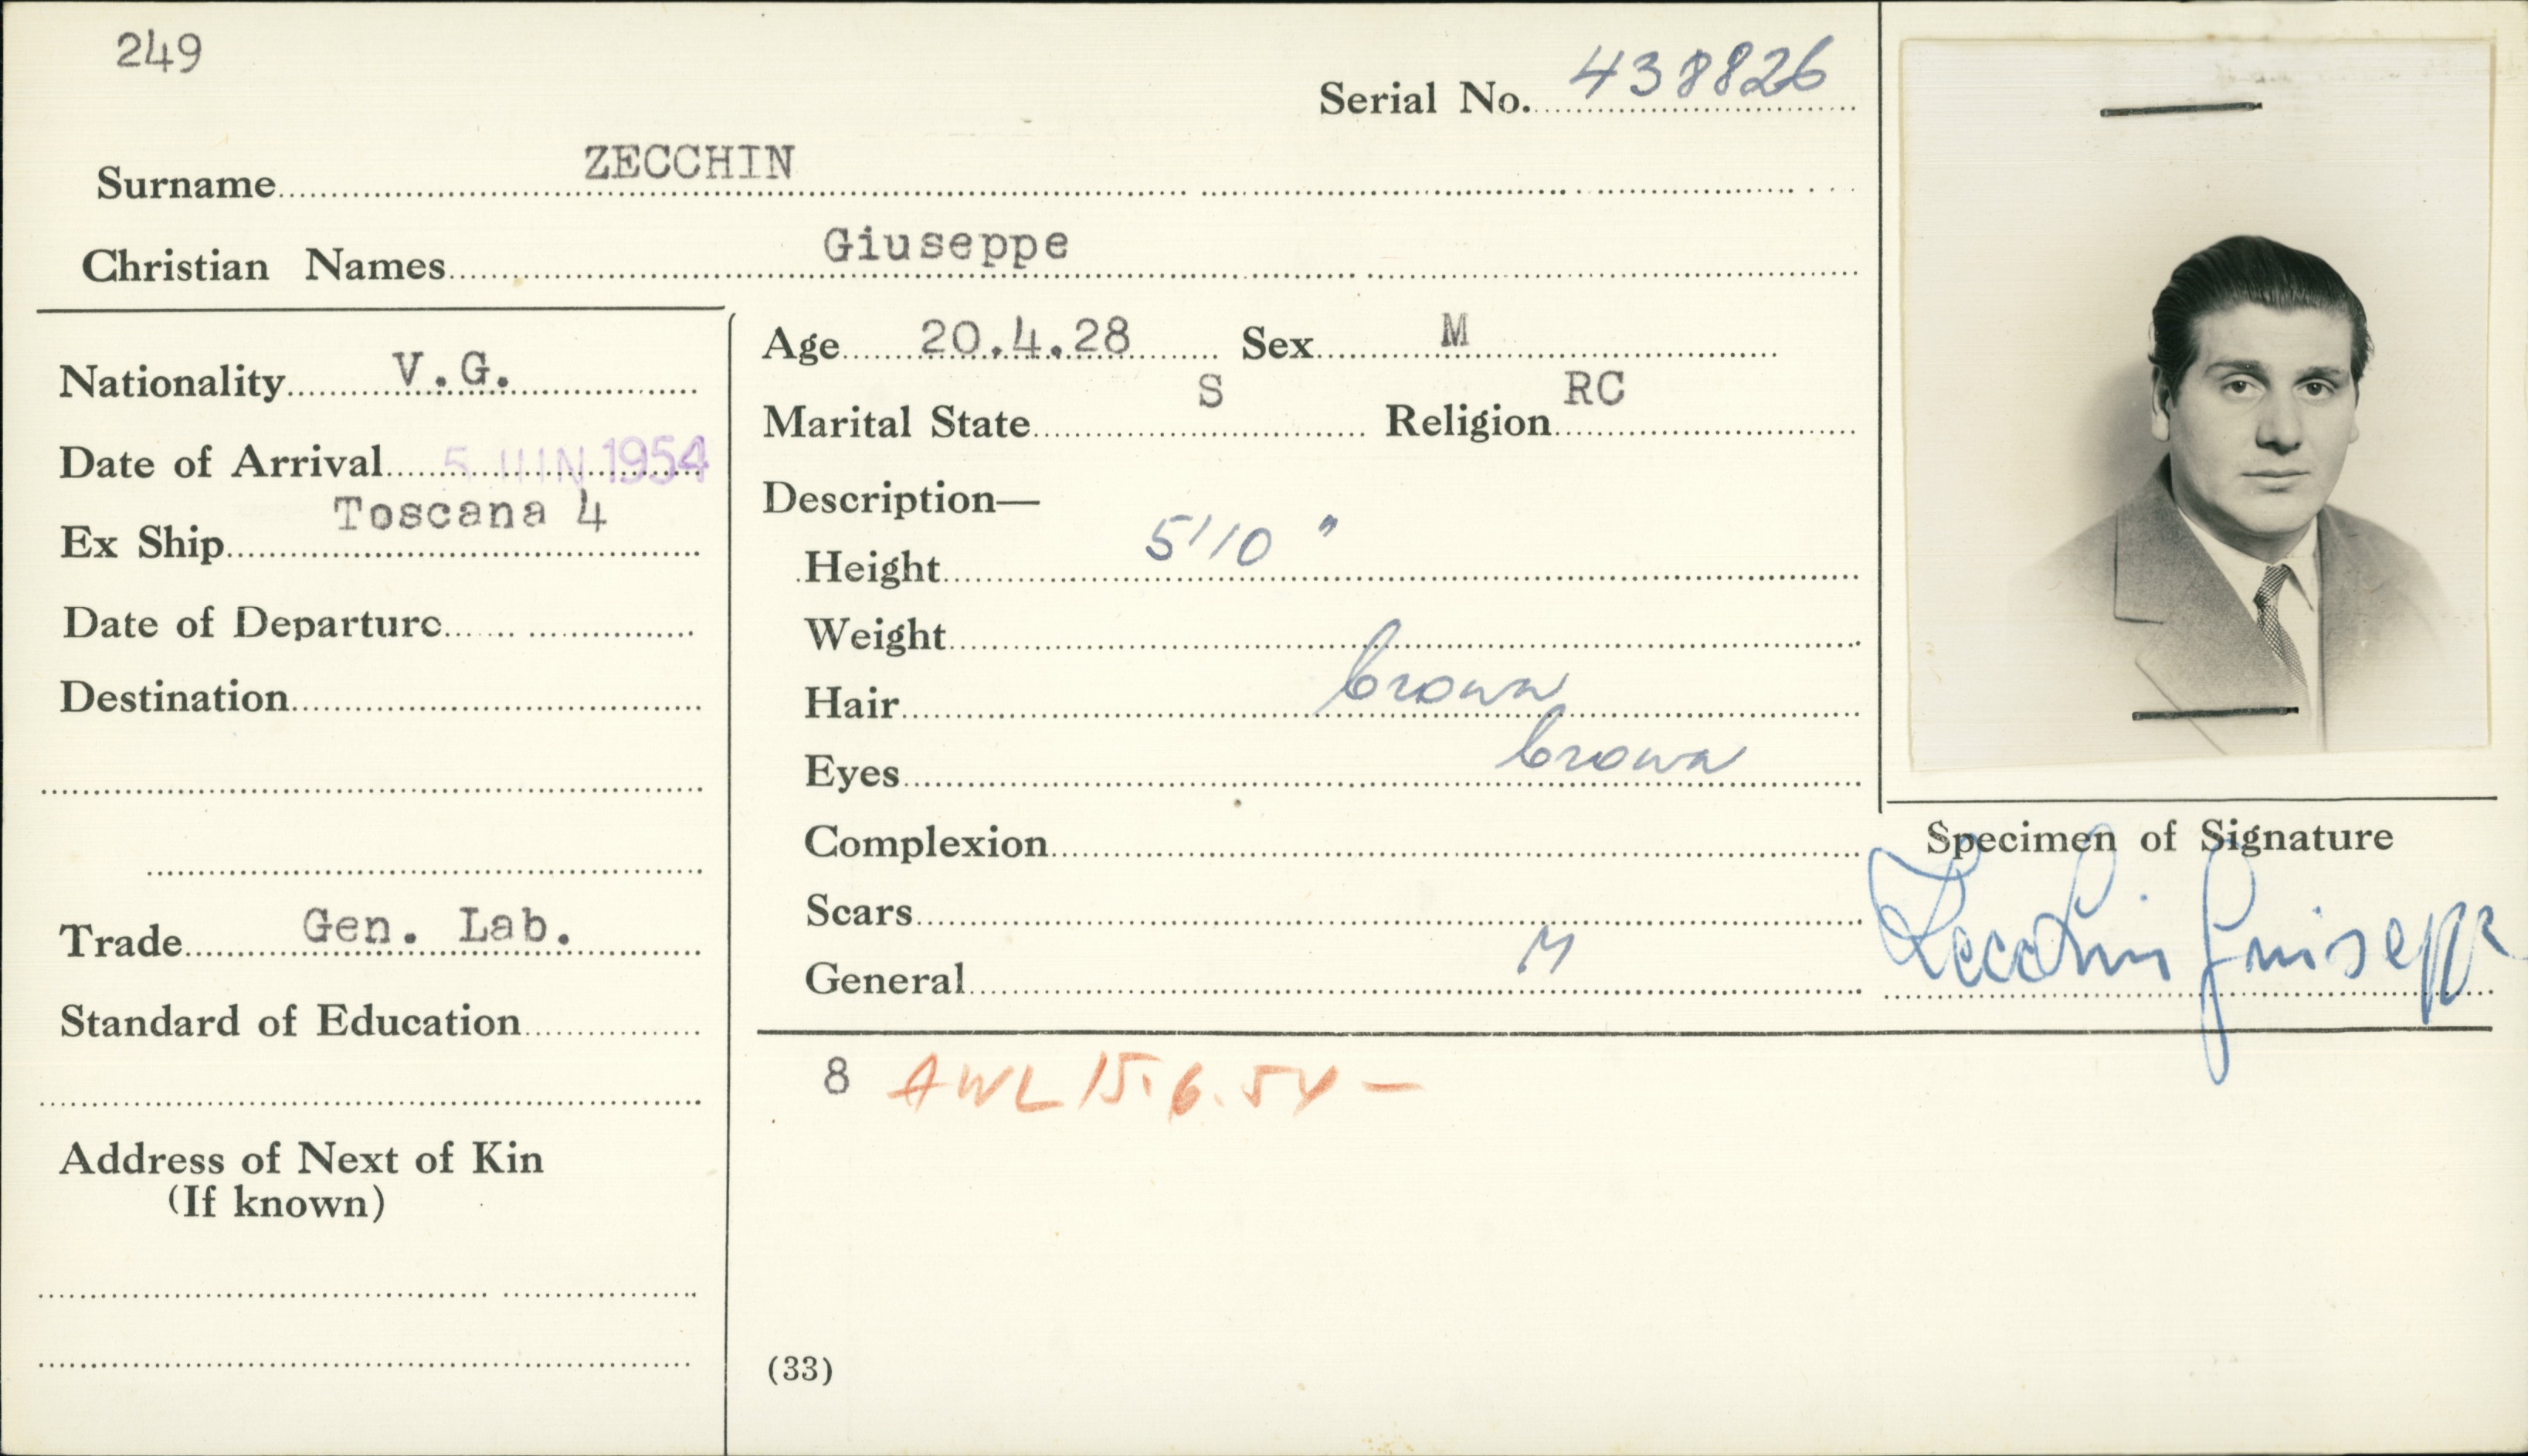 249
Serial No. 438826
Surname ZECCHIN
Christian Names Giuseppe
Nationality V.G.
Date of Arrival 5 JUN 1954
Ex Ship Toscana 4
Date of Departure
Destination
Trade Gen. Lab.
Standard of Education
Address of Next of Kin
(If known)
Age 20.4.28 Sex M
Marital State S Religion RC
Description—
Height 5'10"
Weight
Hair brown
Eyes brown
Complexion
Scars
General M
8 AWL 15.6.54 —
(33)
Specimen of Signature
Zecchin Giuseppe